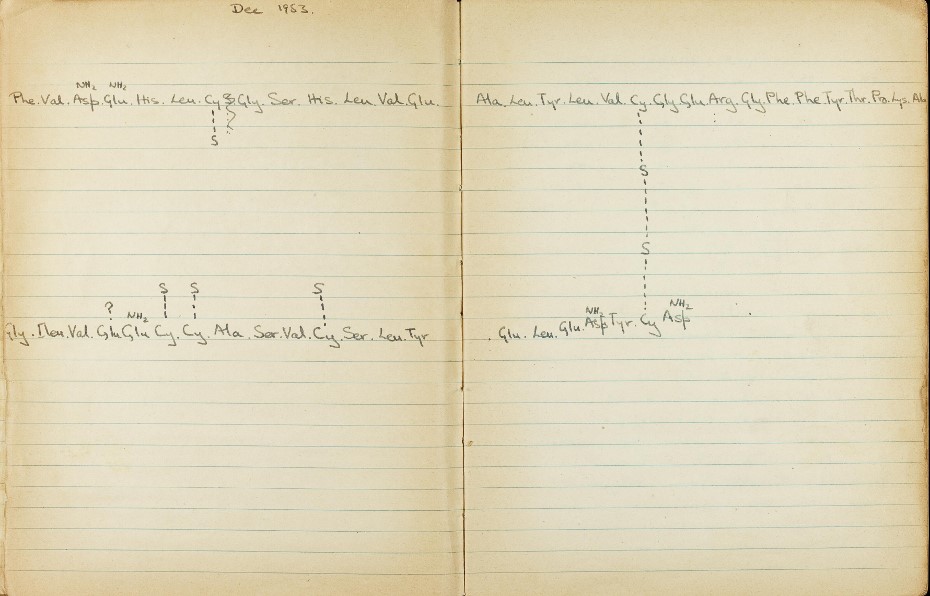 Dec 1953.
NH2 NH2
Phe. Val. Asp. Glu. His. Leu. Cy Gly. Ser. His. Leu. Val. Glu. Ala. Leu. Tyr. Leu. Val. Cy. Gly. Glu. Arg. Gly. Phe. Phe. Tyr. Thr. Pro. Lys. Ala
S
S
S
S S S
? NH2 NH2 NH2
Gly. Ileu. Val. Glu Glu Cy. Cy. Ala. Ser. Val. Cy. Ser. Leu. Tyr . Glu. Leu. Glu. Asp Tyr. Cy Asp